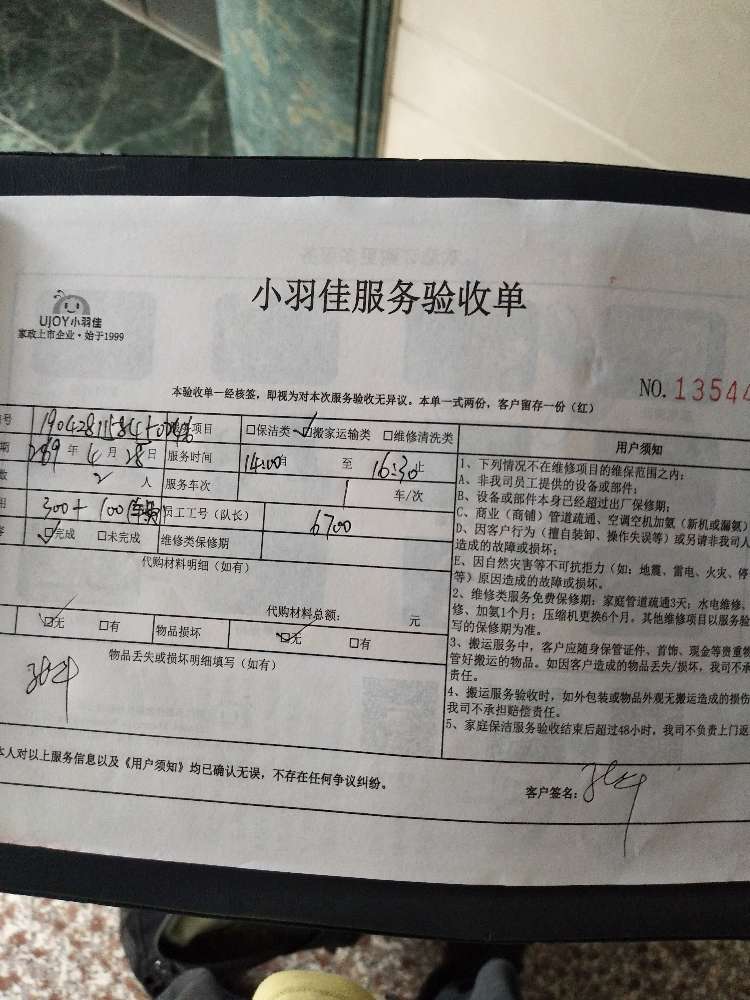 小羽佳服务验收单
UJOY小羽佳
家政上市企业·始于1999
NO. 13544
本验收单一经核签，即视为对本次服务验收无异议。本单一式两份，客户留存一份（红）
号 项目 □保洁类 ☑搬家运输类 □维修清洗类
期 年 4 月 28 日 服务时间 14:00 至 16:30止
数 2 人 服务车次 车/次
用 300+100 员工工号（队长） 6700
☑完成 □未完成 维修类保修期
代购材料明细（如有）
代购材料总额： 元
☑无 □有 物品损坏 ☑无 □有
物品丢失或损坏明细填写（如有）
用户须知
1、下列情况不在维修项目的维保范围之内：
A、非我司员工提供的设备或部件；
B、设备或部件本身已经超过出厂保修期；
C、商业（商铺）管道疏通、空调空机加氨（新机或漏氨）
D、因客户行为（擅自装卸、操作失误等）或另请非我司人
造成的故障或损坏；
E、因自然灾害等不可抗拒力（如：地震、雷电、火灾、停
等）原因造成的故障或损坏。
2、维修类服务免费保修期：家庭管道疏通3天；水电维修、
修、加氨1个月；压缩机更换6个月，其他维修项目以服务验
写的保修期为准。
3、搬运服务中，客户应随身保管证件、首饰、现金等贵重物
管好搬运的物品。如因客户造成的物品丢失/损坏，我司不承
责任。
4、搬运服务验收时，如外包装或物品外观无搬运造成的损伤
我司不承担赔偿责任。
5、家庭保洁服务验收结束后超过48小时，我司不负责上门返
本人对以上服务信息以及《用户须知》均已确认无误，不存在任何争议纠纷。
客户签名：